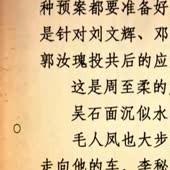 种预案都要准备好
是针对刘文辉、邓
郭汝瑰投共后的应
这是周至柔的
吴石面沉似水
毛人凤也大步
走向他的车，李秘